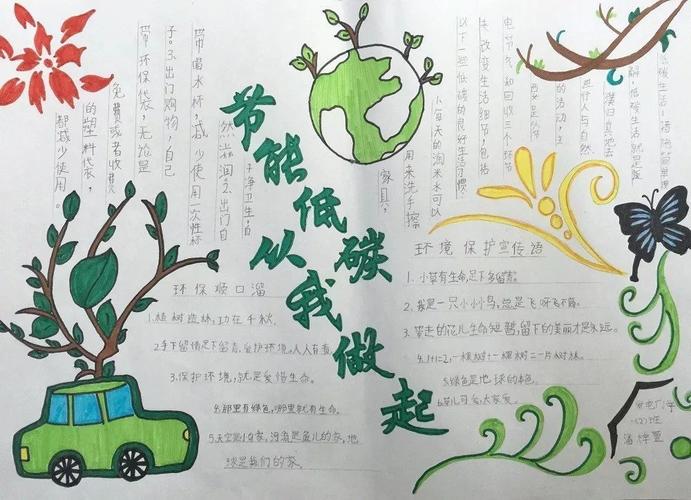 节能低碳
从我做起
低碳生活
电节气和回收三个环节
来改变生活细节,包括
以下一些低碳的良好生活习惯
1.每天的淘米水可以
用来洗手擦
家具,
干净卫生,自
然滋润2.出门自
带喝水杯,减少使用一次性杯
子。3.出门购物,自己
带环保袋,无论是
免费或者收费
的塑料袋,
都减少使用。
环保顺口溜
1.植树造林,功在千秋.
2.手下留情足下留青,爱护环境,人人有责.
3.保护环境,就是爱惜生命.
4.那里有绿色,哪里就有生命.
5.天空是小鸟家,河流是鱼儿的家,地
球是我们的家.
环境保护宣传语
1.小草有生命,足下多留青.
2.我是一只小小鸟,总是飞呀飞不高.
3.带走的花儿生命短暂,留下的美丽才是永远.
4.1+1=2,一棵树+一棵树=一片树林.
5.绿色是地球的本色.